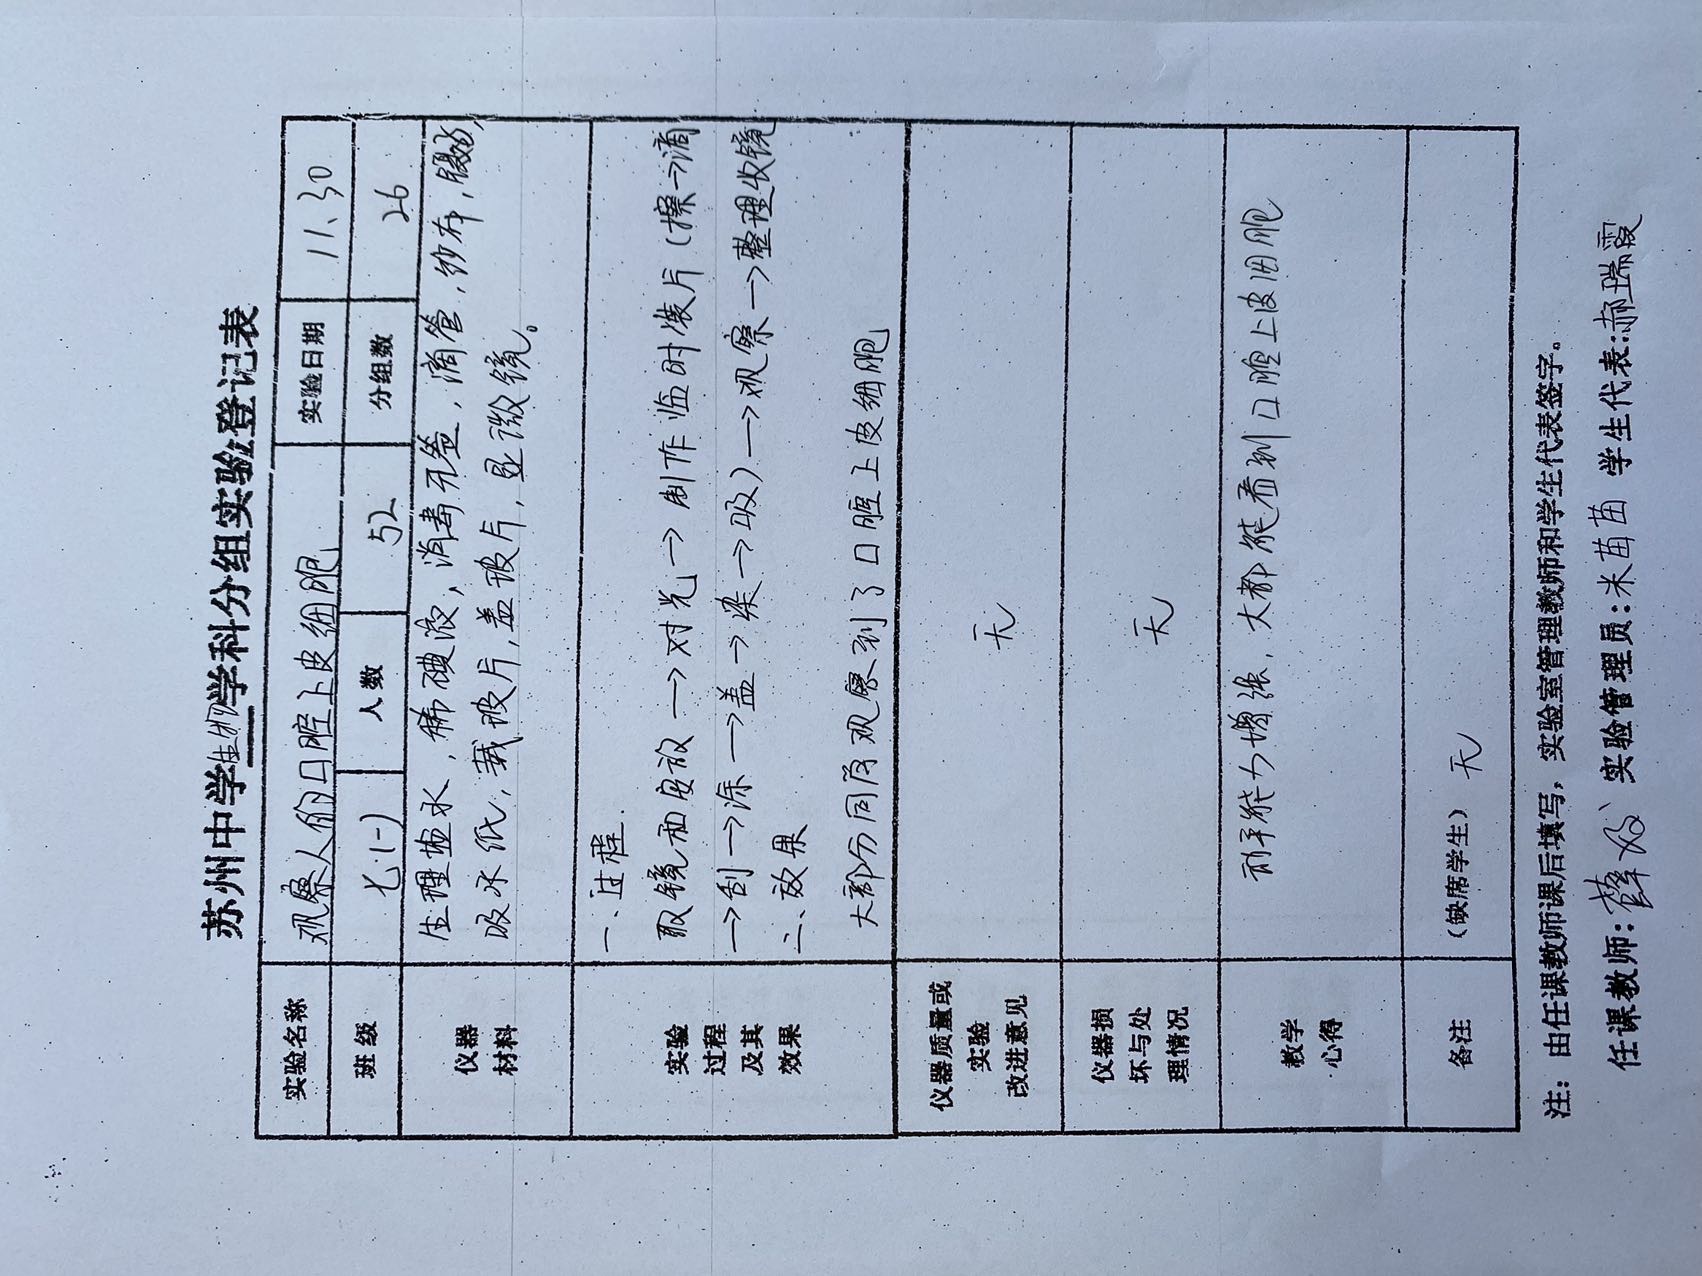 苏州中学生物学科分组实验登记表
实验名称 观察人的口腔上皮细胞 实验日期 11、30
班级 七(一) 人数 52 分组数 26
仪器
材料
生理盐水，稀碘液，消毒牙签，滴管，纱布，镊子，
吸水纸，载玻片，盖玻片，显微镜。
实验
过程
及其
效果
一、过程.
取镜和安放→对光→制作临时装片（擦→滴
→刮→涂→盖→染→吸）→观察→整理收镜
二、效果
大部分同学观察到了口腔上皮细胞
仪器质量或
实验
改进意见
无
仪器损
坏与处
理情况
无
教学
心得
动手能力增强，大都能看到口腔上皮细胞
备注 （缺席学生） 无
注：由任课教师课后填写，实验室管理教师和学生代表签字。
任课教师: 实验管理员:米苗苗 学生代表:郝瑞霞